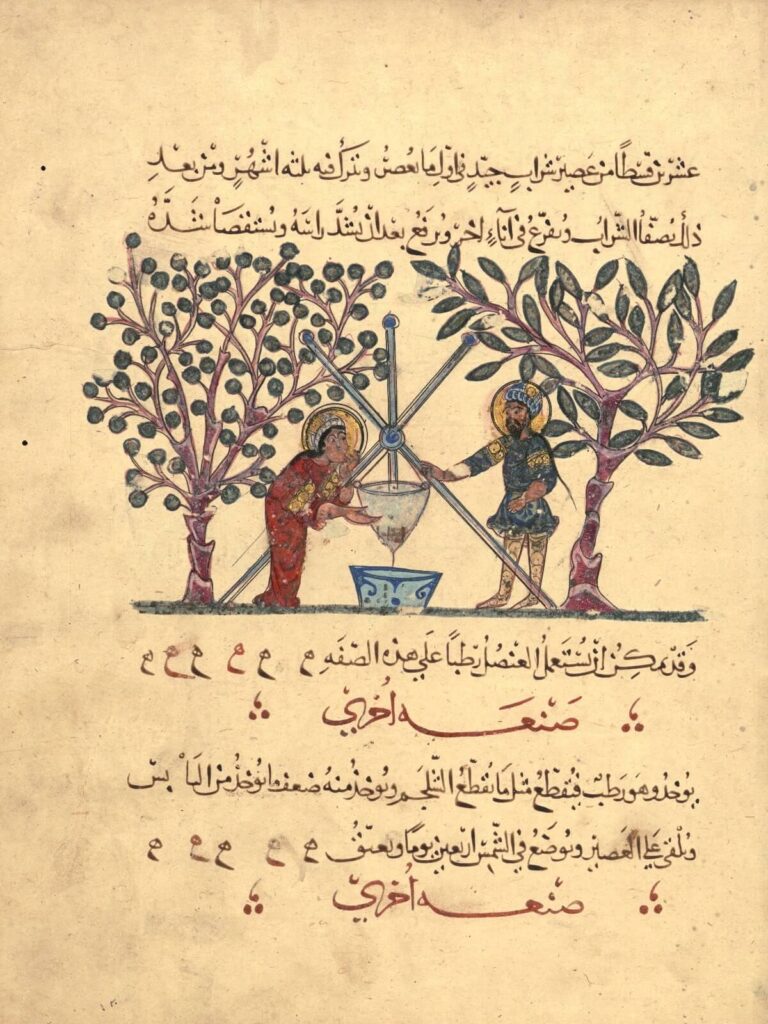 عشرين قسطًا من عصير شراب جيد في اول ما يعصر ويترك فيه ثلثه اشهر ومن بعد
ذلك يصفا الشراب ويفرغ في اناء اخر ويرفع بعد ان يشد راسه ويستقصا شده
وقد يمكن ان يستعمل العنصل رطبًا علي هذه الصفه ه ه ه ه ه ه
صنعه اخري
يوخذ وهو رطب فيقطع مثل ما يقطع الشلجم ويوخذ منه ضعف ما يوخذ من اليابس
ويلقي علي العصير ويوضع في الشمس اربعين يومًا ويعتق ه ه ه ه ه
صنعه اخري